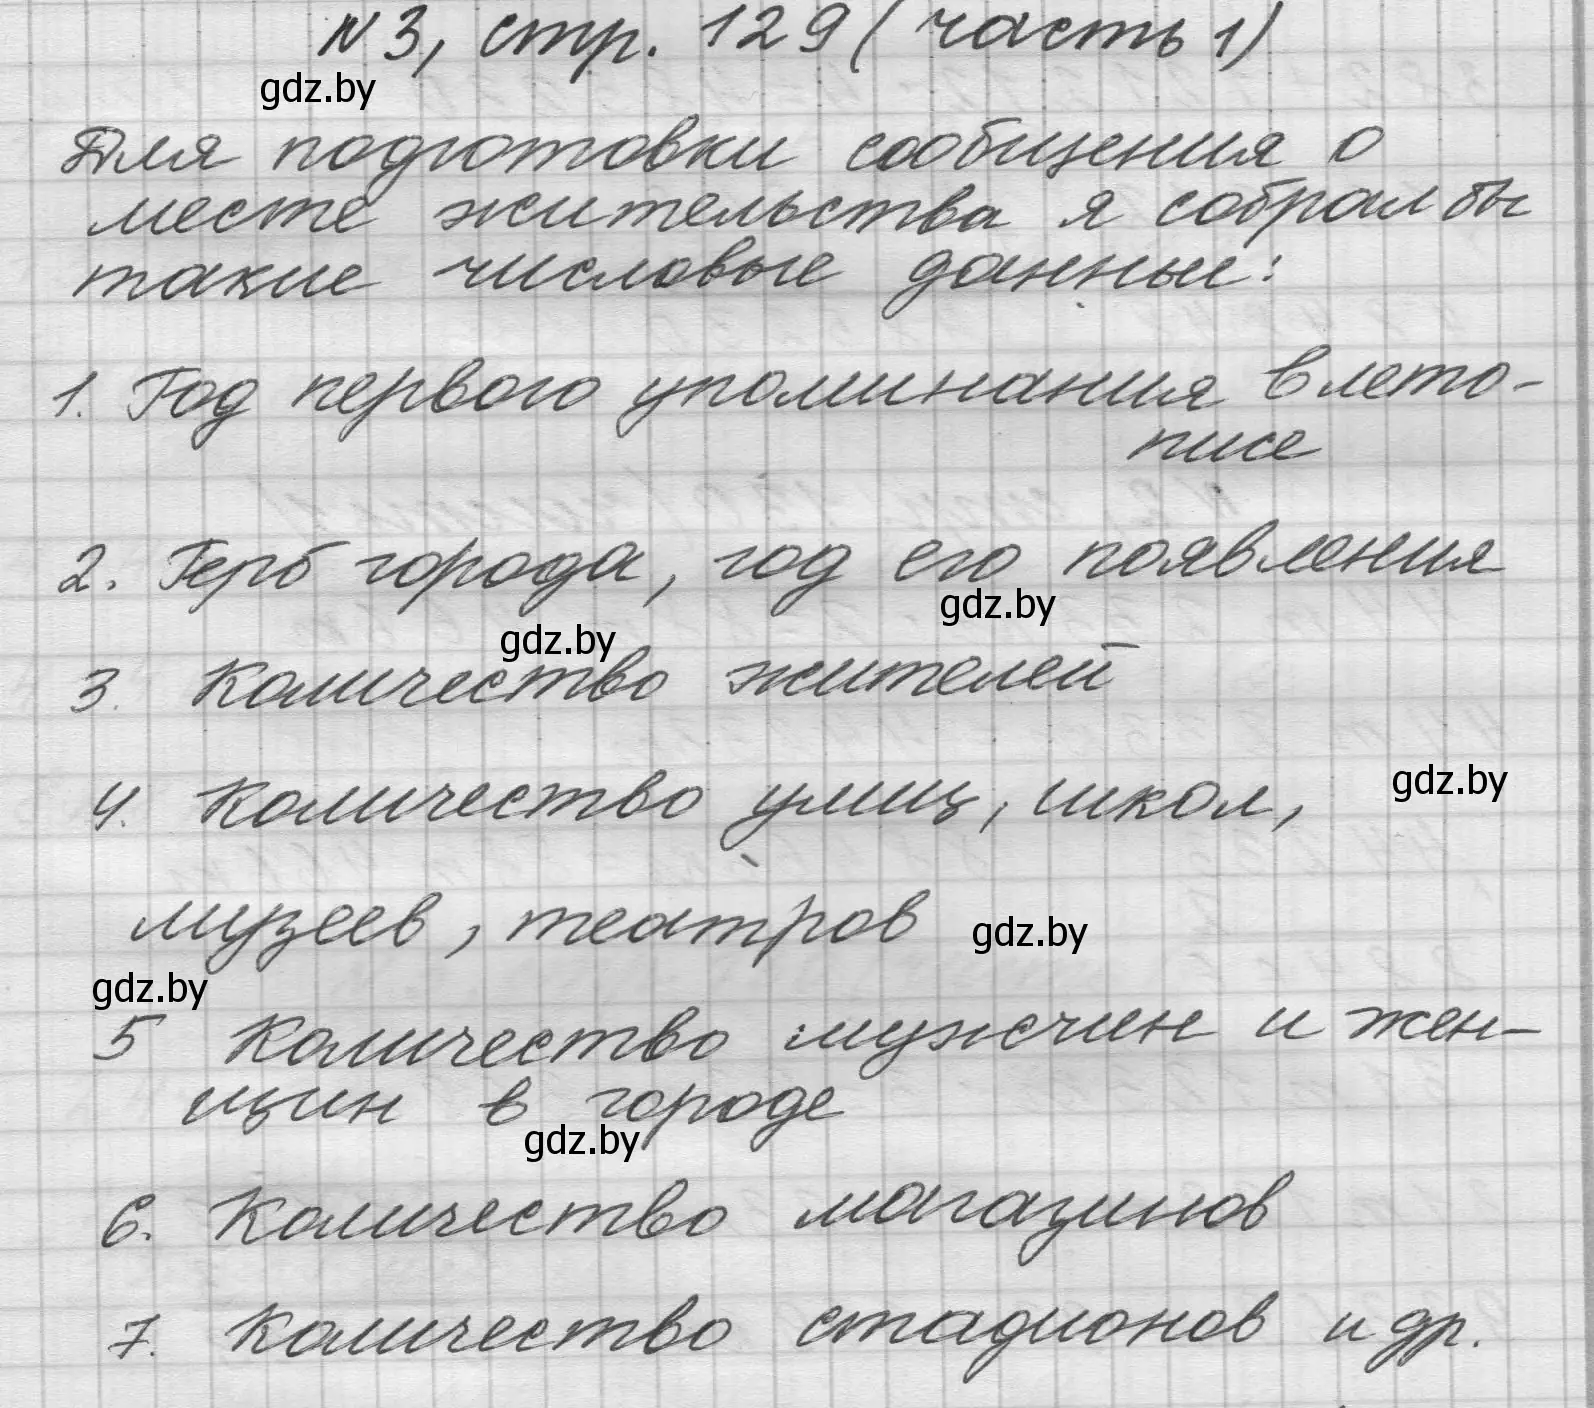 №3, стр. 129 (часть 1)
gdz.by
Для подготовки сообщения о
месте жительства я собрал бы
такие числовые данные:
1. Год первого упоминания в лето-
писе
2. Герб города, год его появления
gdz.by
gdz.by
3. Количество жителей
gdz.by
4. Количество улиц, школ,
музеев, театров
gdz.by
gdz.by
5 Количество мужчин и жен-
щин в городе
gdz.by
6. Количество магазинов
7. Количество стадионов и др.